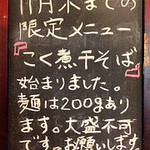 11月末までの
限定メニュー
こく煮干そば
始まりました。
麺は200gあり
ます。大盛不可
ですっお願いします